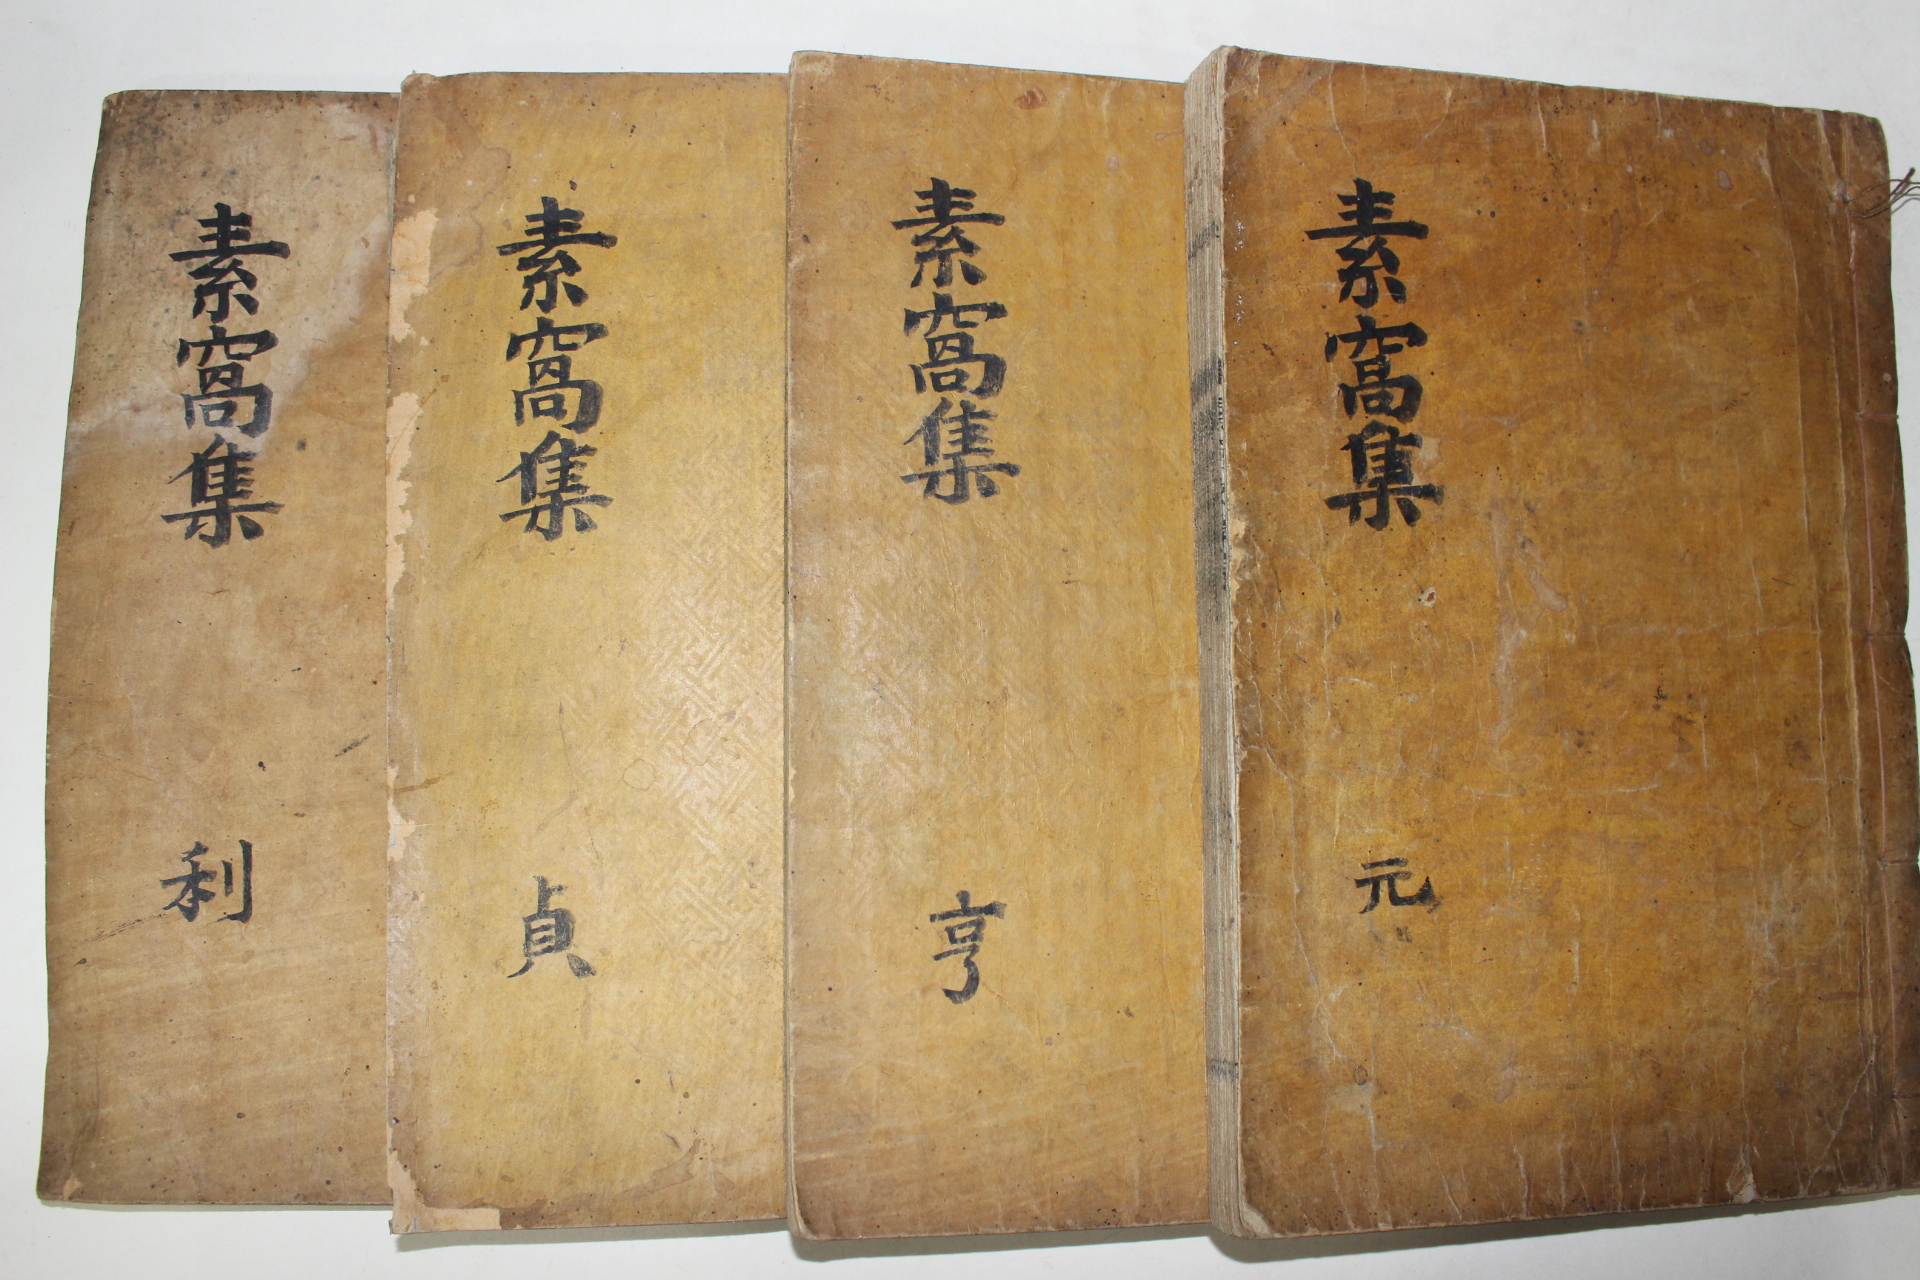 素窩集
元
素窩集
亨
素窩集
貞
素窩集
利